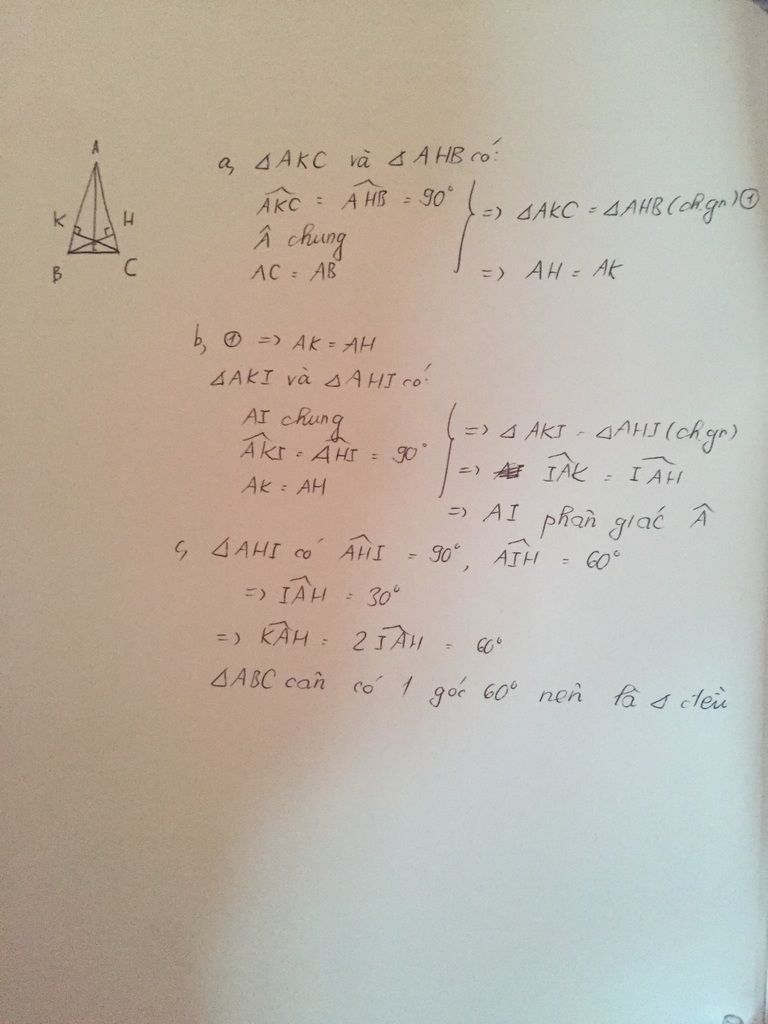 A
K
H
B
C
a, ΔAKC và ΔAHB có:
AKC^ = AHB^ = 90°
Â chung
AC = AB
=> ΔAKC = ΔAHB (ch.gn) ①
=> AH = AK
b, ① => AK = AH
ΔAKI và ΔAHI có:
AI chung
AKI^ = AHI^ = 90°
AK = AH
=> Δ AKI = ΔAHI (ch.gn)
=> IAK^ = IAH^
=> AI phân giác Â
c, ΔAHI có AHI^ = 90°, AIH^ = 60°
=> IAH^ = 30°
=> KAH^ = 2 IAH^ = 60°
ΔABC cân có 1 góc 60° nên là Δ đều